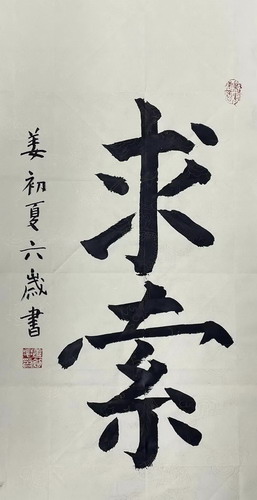 求索
姜初夏六歲書